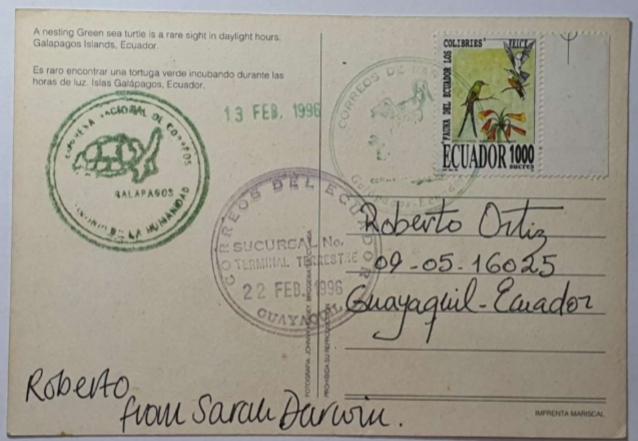 A nesting Green sea turtle is a rare sight in daylight hours.
Galapagos Islands, Ecuador.
Es raro encontrar una tortuga verde incubando durante las
horas de luz. Islas Galápagos, Ecuador.
NACIONAL DE CORREOS
GALAPAGOS
DE LA HUMANIDAD
13 FEB. 1996
CORREOS DE
FAUNA DEL ECUADOR LOS
COLIBRIES
ECUADOR 1000
sucres
CORREOS DEL ECUADOR
SUCURSAL No.
TERMINAL TERRESTRE
22 FEB. 1996
GUAYAQUIL
Roberto Ortiz
09-05-16025
Guayaquil-Ecuador
FOTOGRAFIA
PROHIBIDA SU
Roberto
from Sarah Darwin.
IMPRENTA MARISCAL